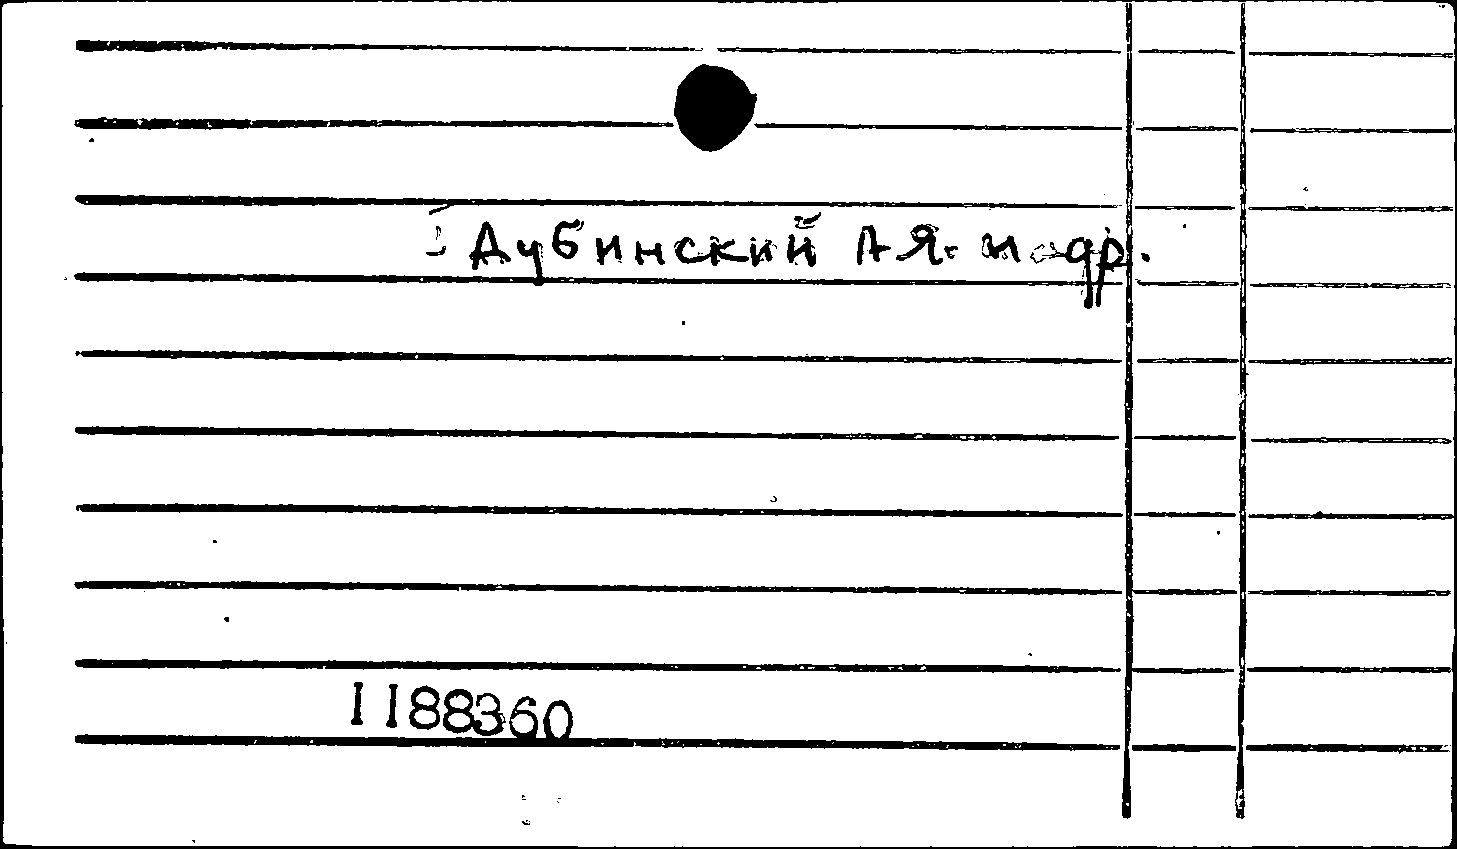 Дубинский А. Я. и др.
1188360